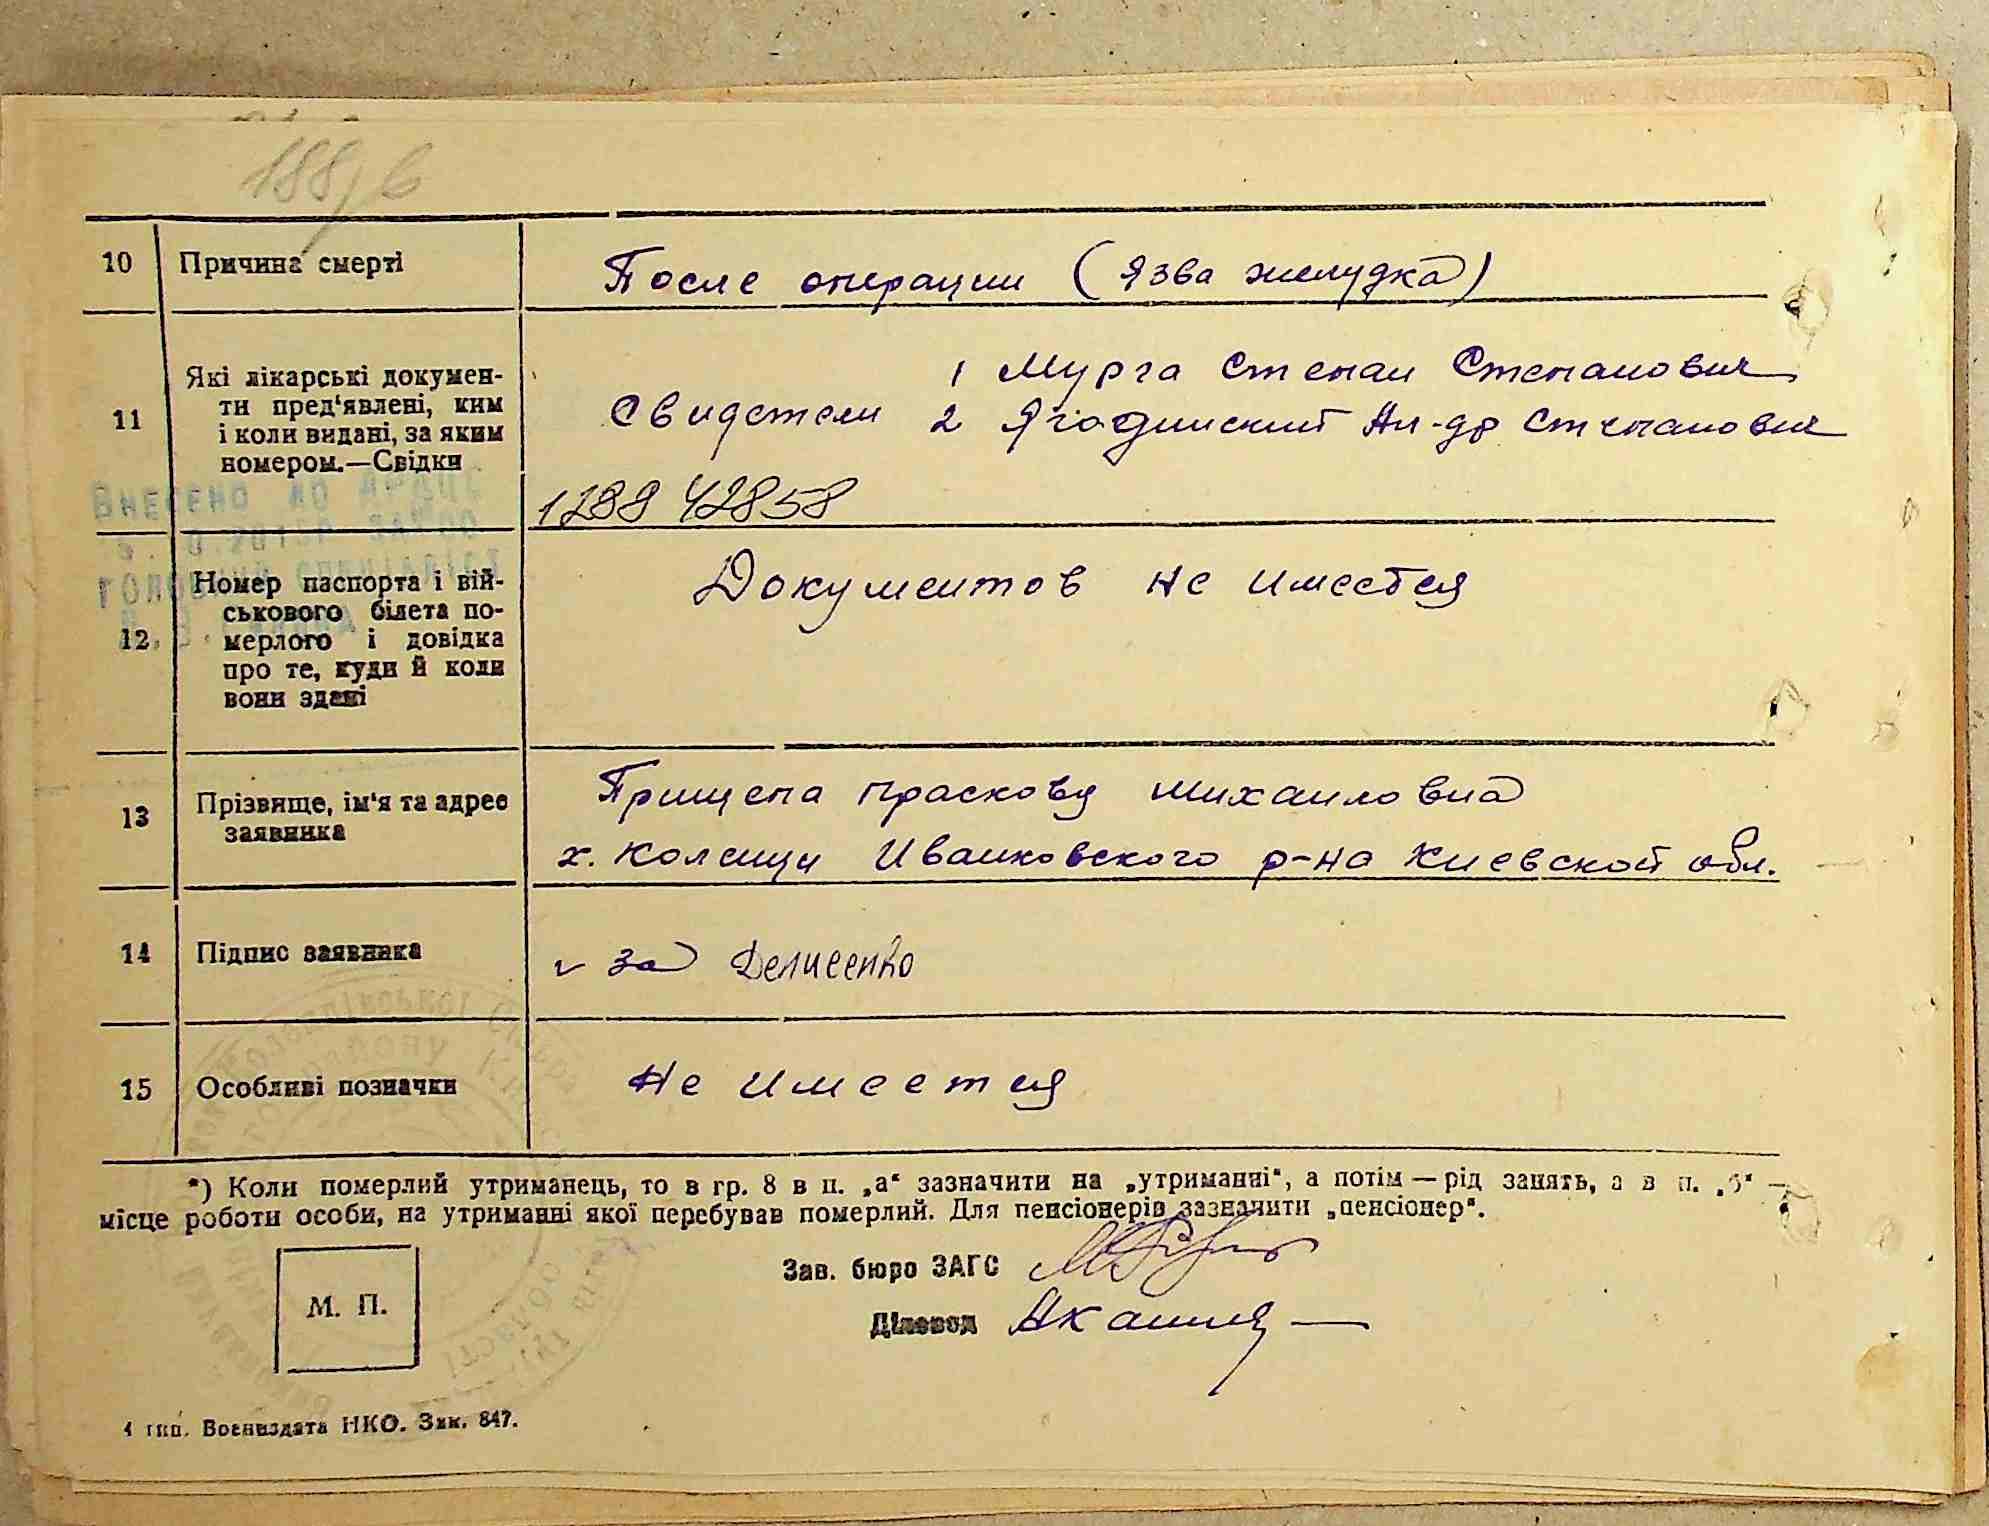 10 Причина смерті
После операции (язва желудка)
11 Які лікарські документи
ти пред'явлені, ким
і коли видані, за яким
номером.—Свідки
1 Мурга Степан Степанович
Свидетели 2 Ягодинский Ал-др Степанович
12 Номер паспорта і вій-
ськового білета по-
мерлого і довідка
про те, куди й коли
вони здані
Документов не имеется
13 Прізвище, ім'я та адрес
заявника
Прищепа Прасковя Михаиловна
х. Иванковского р-на Киевской обл.
14 Підпис заявника
за Денисенко
15 Особливі позначки
Не имеется
*) Коли померлий утриманець, то в гр. 8 в п. „а“ зазначити на „утриманні“, а потім — рід занять, а в п. „б“ —
місце роботи особи, на утриманні якої перебував померлий. Для пенсіонерів зазначити „пенсіонер“.
Зав. бюро ЗАГС
М. П.
Діловод
тип. Воениздата НКО. Зак. 847.